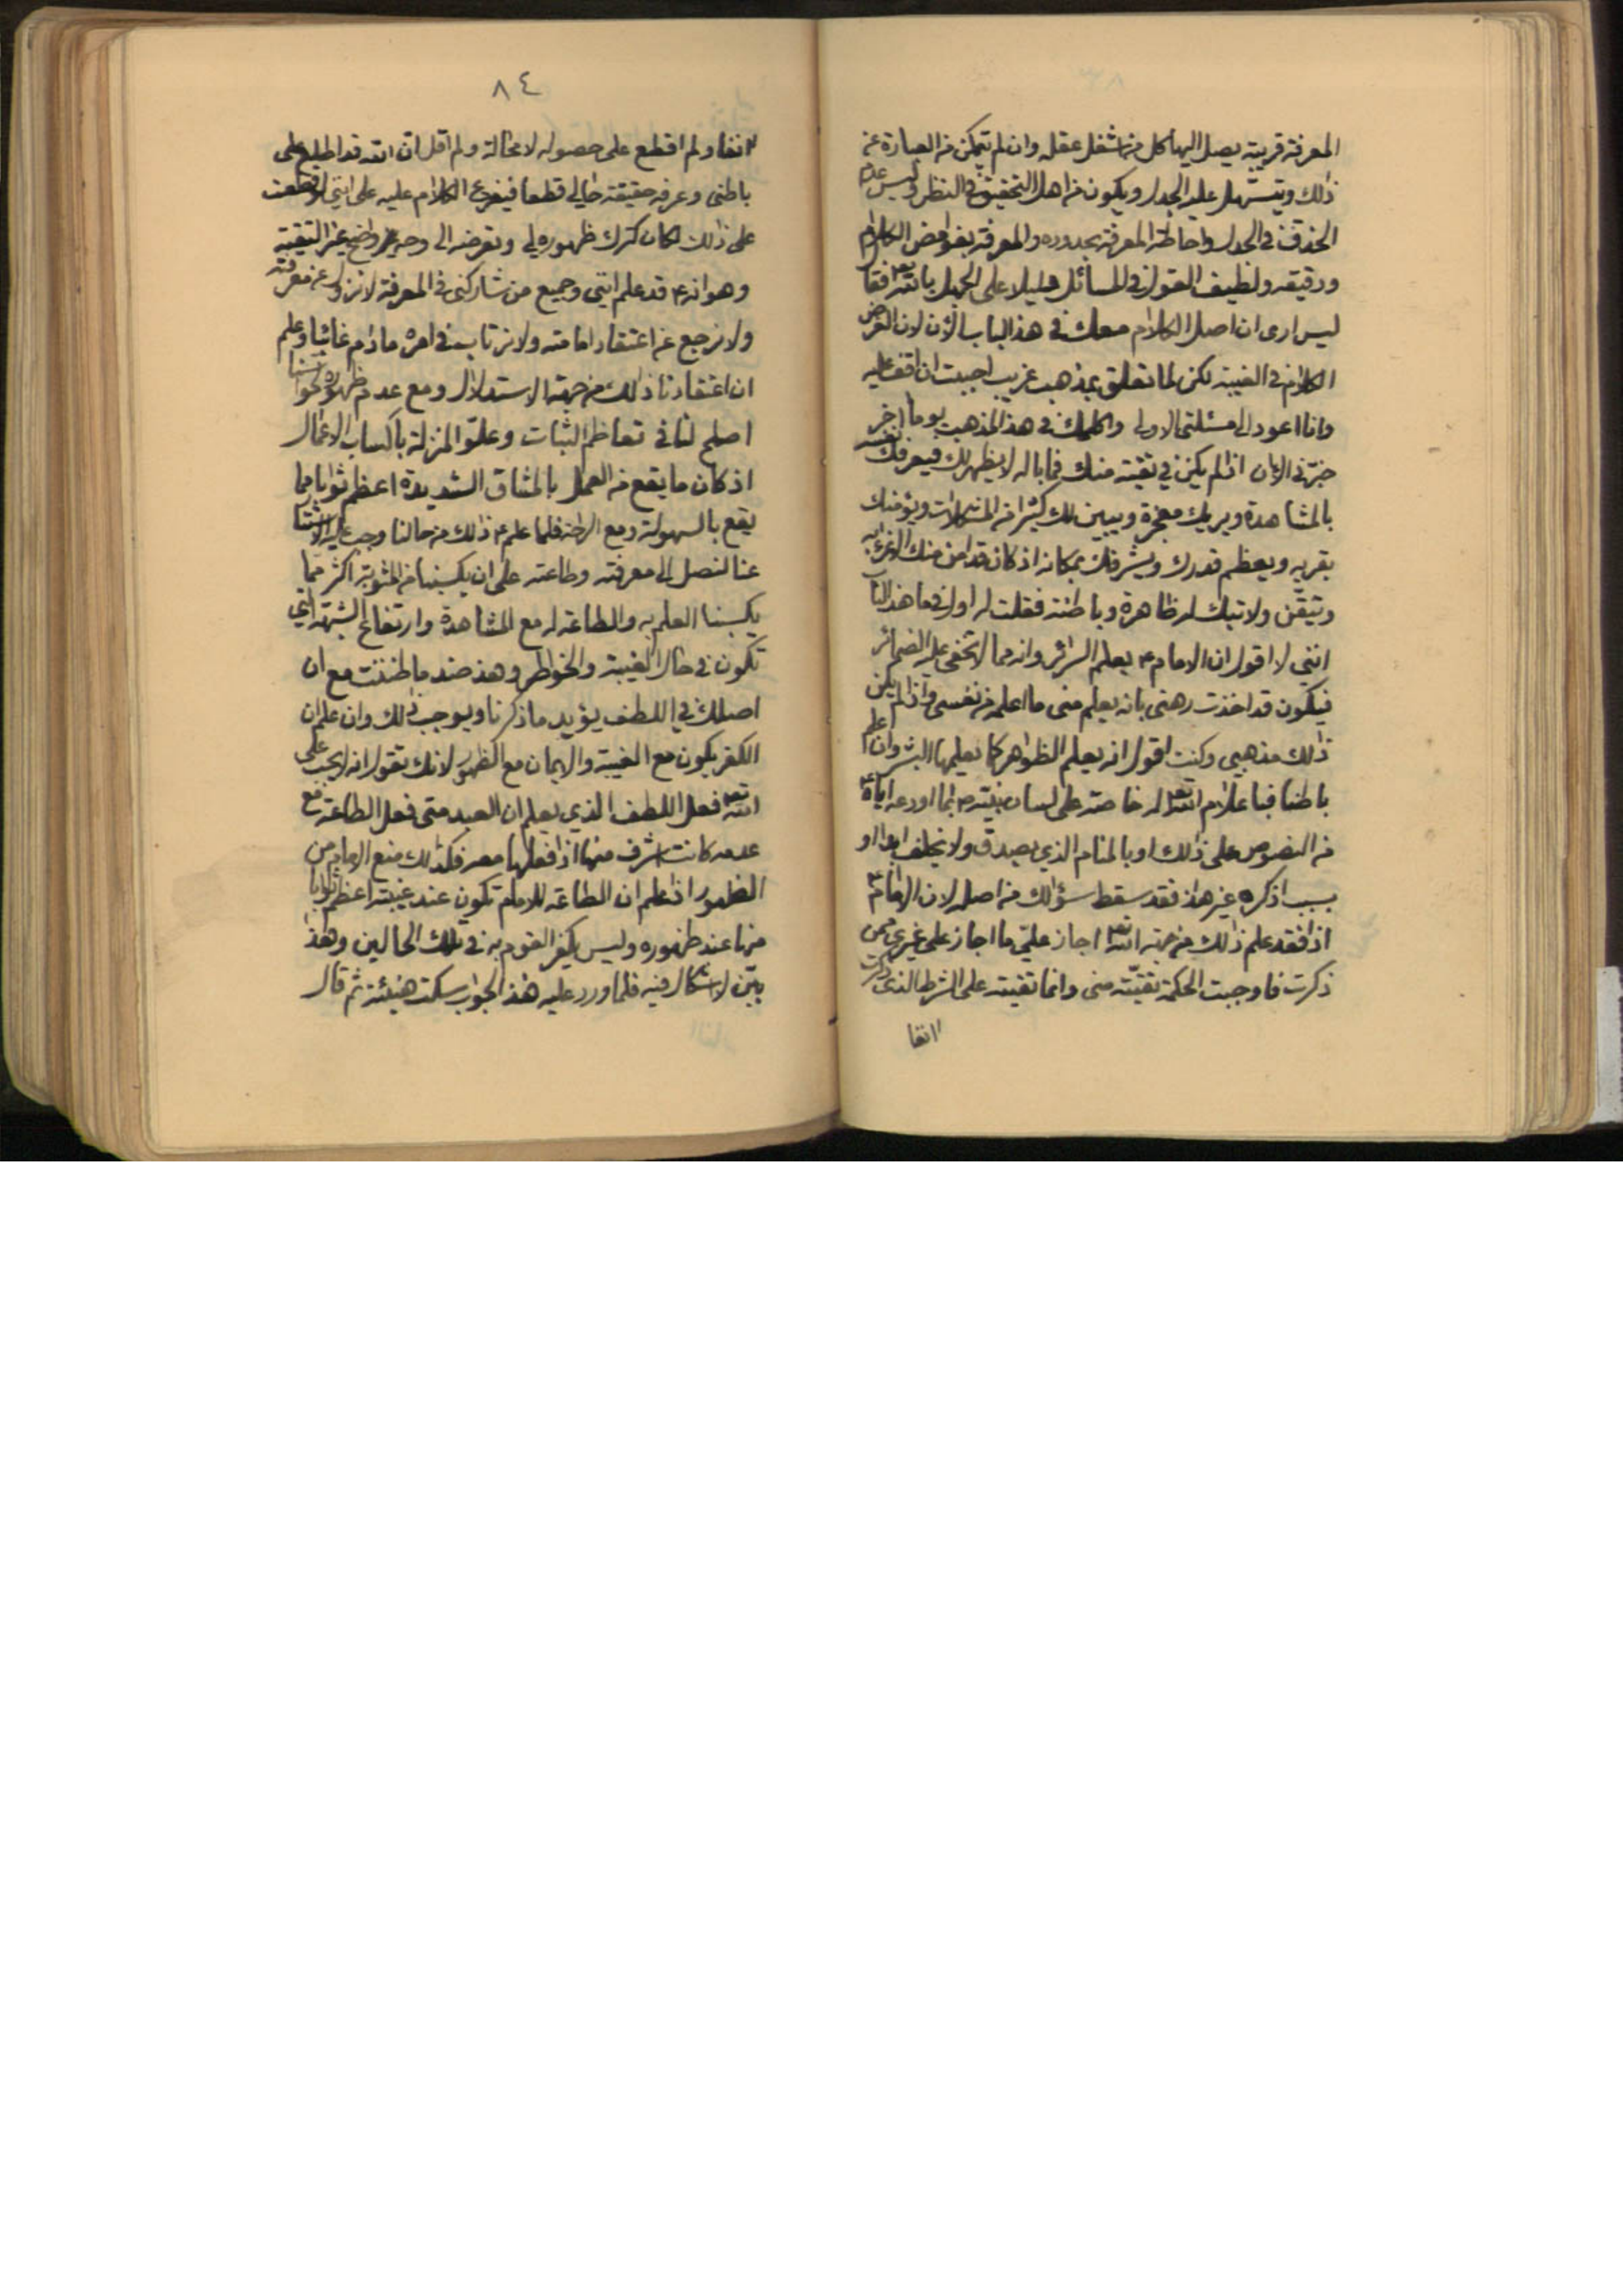 المعرفة قريبة يصل اليها كل من استعمل عقله وان لم يتمكن من العبارة عن
ذلك ويتسهل عليه الجدل ويكون من اهل التحقيق في النظر وليس عدم
الحذق في الجدل واحاطة المعرفة بحدوده والمعرفة بغوامض الكلام
ودقيقه ولطيف القول في المسائل دليلا على الجهل بالله تع فقا
ليس ارى ان اصل الكلام معك في هذا الباب الآن لان الغرض
الكلام في الغيبة لكن لما تعلق بمذهب غريب احببت ان اقف عليه
وانا اعود الى مسئلتي الاولى واكلمك في هذا المذهب يوما اخر
خبرني الان اذا لم يكن في تقيته منك فما باله لا يظهر لك فيعرفك نفسه
بالمشاهدة ويريك معجزة ويبين لك كثيرا من المشكلات ويؤنسك
بقربه ويعظم قدرك ويشرفك بمكانه اذ كان قد امن منك الاغراء به
وتيقن ولايتك له ظاهرة وباطنة فقلت له اول ما في هذا الباب
انني لا اقول ان الامام ع يعلم السرائر وانه مما لا تخفى عليه الضمائر
فيكون قد اخذت رهني بانه يعلم مني ما اعلمه من نفسي واذا لم يكن
ذلك مذهبي وكنت اقول انه يعلم الظواهر كما يعلمها البشر وان علم
باطنا فباعلام الله تع له خاصة على لسان نبيه ع بما اودعه اباؤه ع
من النصوص على ذلك او بالمنام الذي يصدق ولا يخلف ابدا او
بسبب اذكره غير هذا فقد سقط سؤالك من اصله لان الامام ع
اذا فقد علم ذلك من جهة الله تع اجاز علي ما اجاز على غيري ممن
ذكرت فاوجبت الحكمة تقيته مني وانما تقيته على الشرط الذي ذكرت
انفا
٨٤
انفا ولم اقطع على حصوله لا محالة ولم اقل ان الله قد اطلع على
باطني وعرفه حقيقة حالي قطعا فيفرع الكلام عليه على انني لو قطعت
على ذلك لكان لترك ظهوره لي وتعرفه الي وجه واضح غير التقية
وهو انه ع قد علم انني وجميع من شاركني في المعرفة لا نزول عن معرفته
ولا نرجع عن اعتقاد امامته ولا نرتاب في امره ما دام غائبا وعلم
ان اعتقادنا ذلك من جهة الاستدلال ومع عدم ظهوره لحواسنا
اصلح لنا في تعاظم الثبات وعلو المنزلة باكتساب الاعمال
اذ كان ما يقع من العمل بالمشاق الشديدة اعظم ثوابا مما
يقع بالسهولة ومع الراحة فلما علم ع ذلك من حالنا وجب عليه الاستتار
عنا لنصل الى معرفته وطاعته على ان يكسبنا من المثوبة اكثر مما
يكسبنا العلم به والطاعة له مع المشاهدة وارتفاع الشبهة التي
تكون في حال الغيبة والخواطر وهذا ضد ما ظننت مع ان
اصلك في اللطف يؤيد ما ذكرنا ويوجب ذلك وان علم ان
الكفر يكون مع الغيبة والايمان مع الظهور لانك تقول انه لا يجب على
الله تع فعل اللطف الذي يعلم ان العبد متى فعل الطاعة مع
عدمه كانت اشرف منها اذا فعلها معه فكذلك منع الامام من
الظهور اذا علم ان الطاعة للامام تكون عند غيبته اعظم ثوابا
منها عند ظهوره وليس يكفر القوم به في تلك الحالين وهذا
بين لا اشكال فيه فلما ورد عليه هذا الجواب سكت هنيئة ثم قال